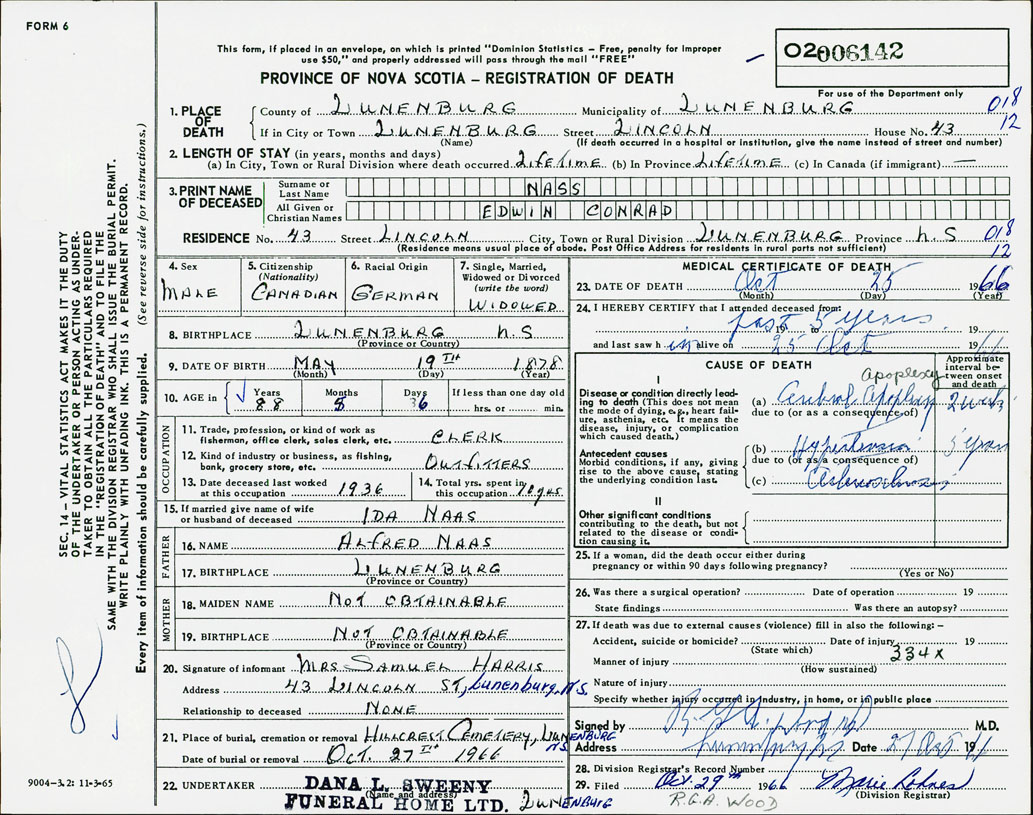 FORM 6
This form, if placed in an envelope, on which is printed "Dominion Statistics – Free, penalty for improper
use $50," and properly addressed will pass through the mail "FREE"
PROVINCE OF NOVA SCOTIA – REGISTRATION OF DEATH
02 006142
For use of the Department only
018
12
1. PLACE OF DEATH
County of LUNENBURG Municipality of LUNENBURG
If in City or Town LUNENBURG Street LINCOLN House No. 43
(Name) (If death occurred in a hospital or institution, give the name instead of street and number)
2. LENGTH OF STAY (in years, months and days)
(a) In City, Town or Rural Division where death occurred LIFETIME (b) In Province LIFETIME (c) In Canada (if immigrant) —
3. PRINT NAME OF DECEASED
Surname or Last Name NASS
All Given or Christian Names EDWIN CONRAD
RESIDENCE No. 43 Street LINCOLN City, Town or Rural Division LUNENBURG Province N.S 018
(Residence means usual place of abode. Post Office Address for residents in rural parts not sufficient) 12
4. Sex
MALE
5. Citizenship
(Nationality)
CANADIAN
6. Racial Origin
GERMAN
7. Single, Married,
Widowed or Divorced
(write the word)
WIDOWED
8. BIRTHPLACE LUNENBURG N.S
(Province or Country)
9. DATE OF BIRTH MAY 19TH 1878
(Month) (Day) (Year)
10. AGE in Years Months Days If less than one day old
88 5 6 hrs. or min.
OCCUPATION
11. Trade, profession, or kind of work as
fisherman, office clerk, sales clerk, etc. CLERK
12. Kind of industry or business, as fishing,
bank, grocery store, etc. OUTFITTERS
13. Date deceased last worked
at this occupation 1936
14. Total yrs. spent in
this occupation 10 yrs
15. If married give name of wife
or husband of deceased IDA NAAS
FATHER
16. NAME ALFRED NAAS
17. BIRTHPLACE LUNENBURG
(Province or Country)
MOTHER
18. MAIDEN NAME NOT OBTAINABLE
19. BIRTHPLACE NOT OBTAINABLE
(Province or Country)
20. Signature of informant MRS SAMUEL HARRIS
Address 43 LINCOLN ST, Lunenburg, N.S.
Relationship to deceased NONE
21. Place of burial, cremation or removal HILLCREST CEMETERY, LUNENBURG
N.S
Date of burial or removal OCT. 27TH 1966
22. UNDERTAKER DANA L. SWEENY
(Name and address)
FUNERAL HOME LTD. LUNENBURG
MEDICAL CERTIFICATE OF DEATH
23. DATE OF DEATH Oct 25 1966
(Month) (Day) (Year)
24. I HEREBY CERTIFY that I attended deceased from:
past 5 years 19 19
and last saw h im alive on 25 Oct 19
CAUSE OF DEATH
Approximate
interval be-
tween onset
and death
I
Apoplexy
Disease or condition directly lead-
ing to death (This does not mean
the mode of dying, e.g., heart fail-
ure, asthenia, etc. It means the
disease, injury, or complication
which caused death.)
(a) Cerebral Apoplexy 2 weeks
due to (or as a consequence of)
Antecedent causes
Morbid conditions, if any, giving
rise to the above cause, stating
the underlying condition last.
(b) Hypertension 5 years
due to (or as a consequence of)
(c) Arteriosclerosis
II
Other significant conditions
contributing to the death, but not
related to the disease or condi-
tion causing it.
25. If a woman, did the death occur either during
pregnancy or within 90 days following pregnancy?
(Yes or No)
26. Was there a surgical operation? Date of operation 19
State findings Was there an autopsy?
27. If death was due to external causes (violence) fill in also the following: –
Accident, suicide or homicide? Date of injury 19
(State which) 334x
Manner of injury
(How sustained)
Nature of injury
Specify whether injury occurred in industry, in home, or in public place
Signed by M.D.
Address Date 27 Oct 19
28. Division Registrar's Record Number
29. Filed Oct. 29th 1966 Marie Lohnes
(Division Registrar)
R.G.A. WOOD
SEC. 14 – VITAL STATISTICS ACT MAKES IT THE DUTY
OF THE UNDERTAKER OR PERSON ACTING AS UNDER-
TAKER TO OBTAIN ALL THE PARTICULARS REQUIRED
IN THE "REGISTRATION OF DEATH" AND TO FILE THE
SAME WITH THE DIVISION REGISTRAR WHO SHALL ISSUE THE BURIAL PERMIT.
WRITE PLAINLY WITH UNFADING INK. THIS IS A PERMANENT RECORD.
Every item of information should be carefully supplied. (See reverse side for instructions.)
9004-3.2: 11-3-65